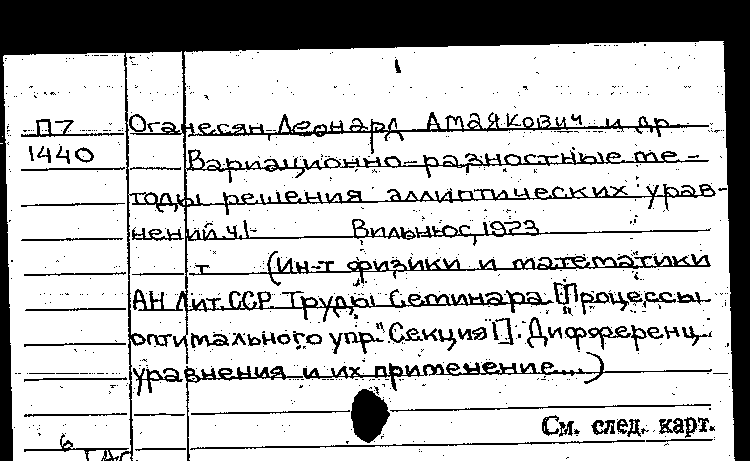 П7
1440
Оганесян, Леонард Амаякович и др.
Вариационно-разностные ме-
тоды решения эллиптических урав-
нений. ч.1- Вильнюс, 1973
т (Ин-т физики и математики
АН Лит.ССР. Труды Семинара "Процессы
оптимального упр." Секция I]. Дифференц.
уравнения и их применение...)
См. след. карт.
6